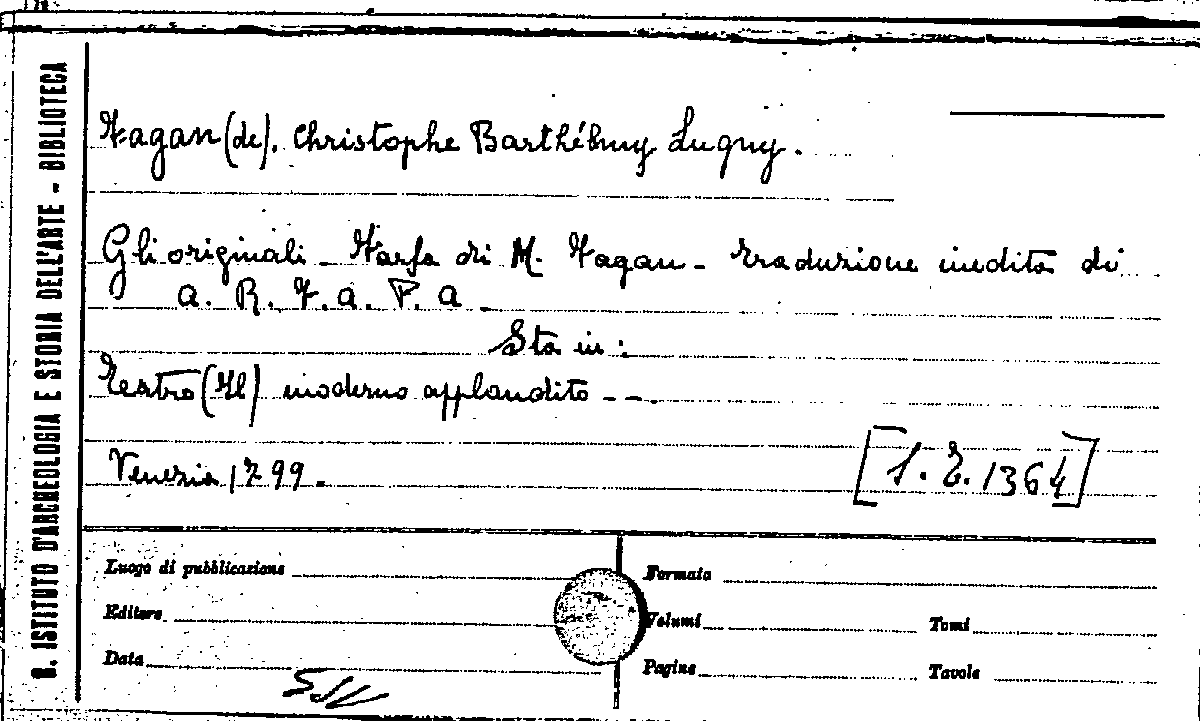 R. ISTITUTO D'ARCHEOLOGIA E STORIA DELL'ARTE - BIBLIOTECA
Fagan (de). Christophe Barthélmy Lugny.
Gli originali - Farsa di M. Fagan - Traduzione inedita di
A. R. F. A. P. A.
Sta in:
Teatro (Il) moderno applaudito ---.
Venezia 1799.
[S. T. 1364]
Luogo di pubblicazione
Formato
Editore
Volumi
Tomi
Data
Pagine
Tavole